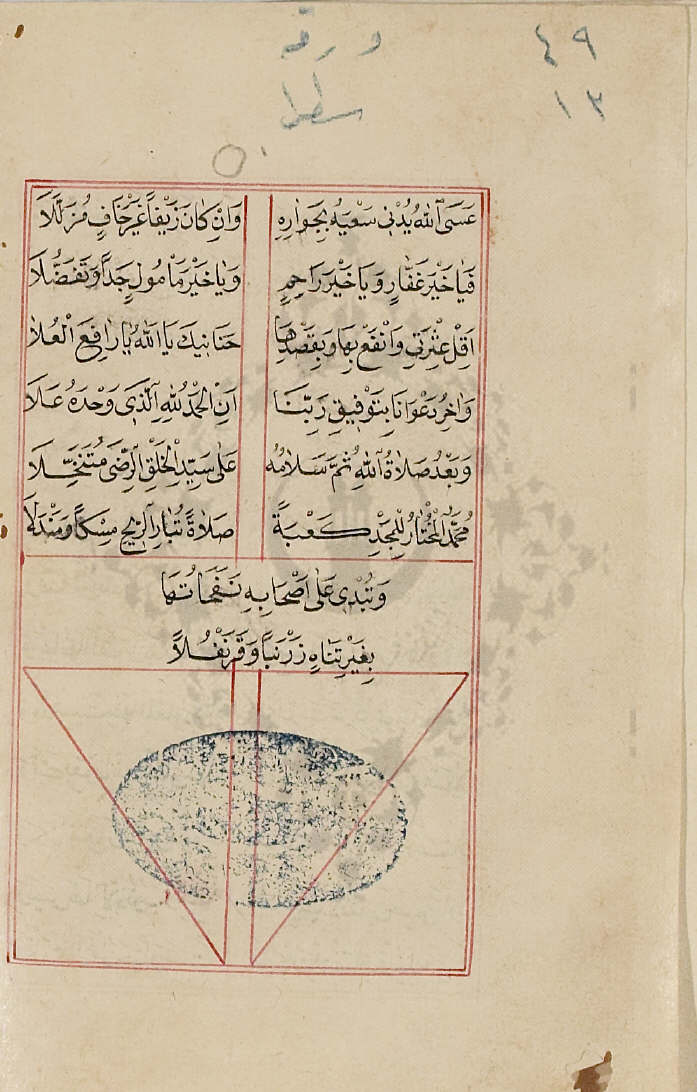 ورقه ٤٩
سطر ١٣
عَسَى اللهُ يُدْنِى سَعْيَهُ بِجَوَارِهِ وَاِنْ كَانَ زَيْفًا غَيْرَ خَافٍ مُزَلَّلَا
فَيَا خَيْرَ غَفَّارٍ وَيَا خَيْرَ رَاحِمٍ وَيَا خَيْرَ مَأْمُولٍ جَدًا وَتَفَضُّلَا
اَقِلْ عَثْرَتِى وَانْفَعْ بِهَا وَبِقَصْدِهَا حَنَانَيْكَ يَا اَللهُ يَا رَافِعَ الْعُلَا
وَاٰخِرُ دَعْوَانَا بِتَوْفِيقِ رَبِّنَا اَنِ الْحَمْدُ لِلّٰهِ الَّذِى وَحْدَهُ عَلَا
وَبَعْدُ صَلَاةُ اللهِ ثُمَّ سَلَامُهُ عَلَى سَيِّدِ الْخَلْقِ الرِّضَى مُتَنَخَّلَا
مُحَمَّدٍ الْمُخْتَارِ لِلْمَجْدِ كَعْبَةً صَلَاةً تُبَارِ الرِّيحَ مِسْكًا وَمَنْدَلَا
وَتُبْدِى عَلَى اَصْحَابِهِ نَفَحَاتُهَا
بِغَيْرِ تَنَاهٍ زَرْنَبًا وَقَرَنْفُلًا